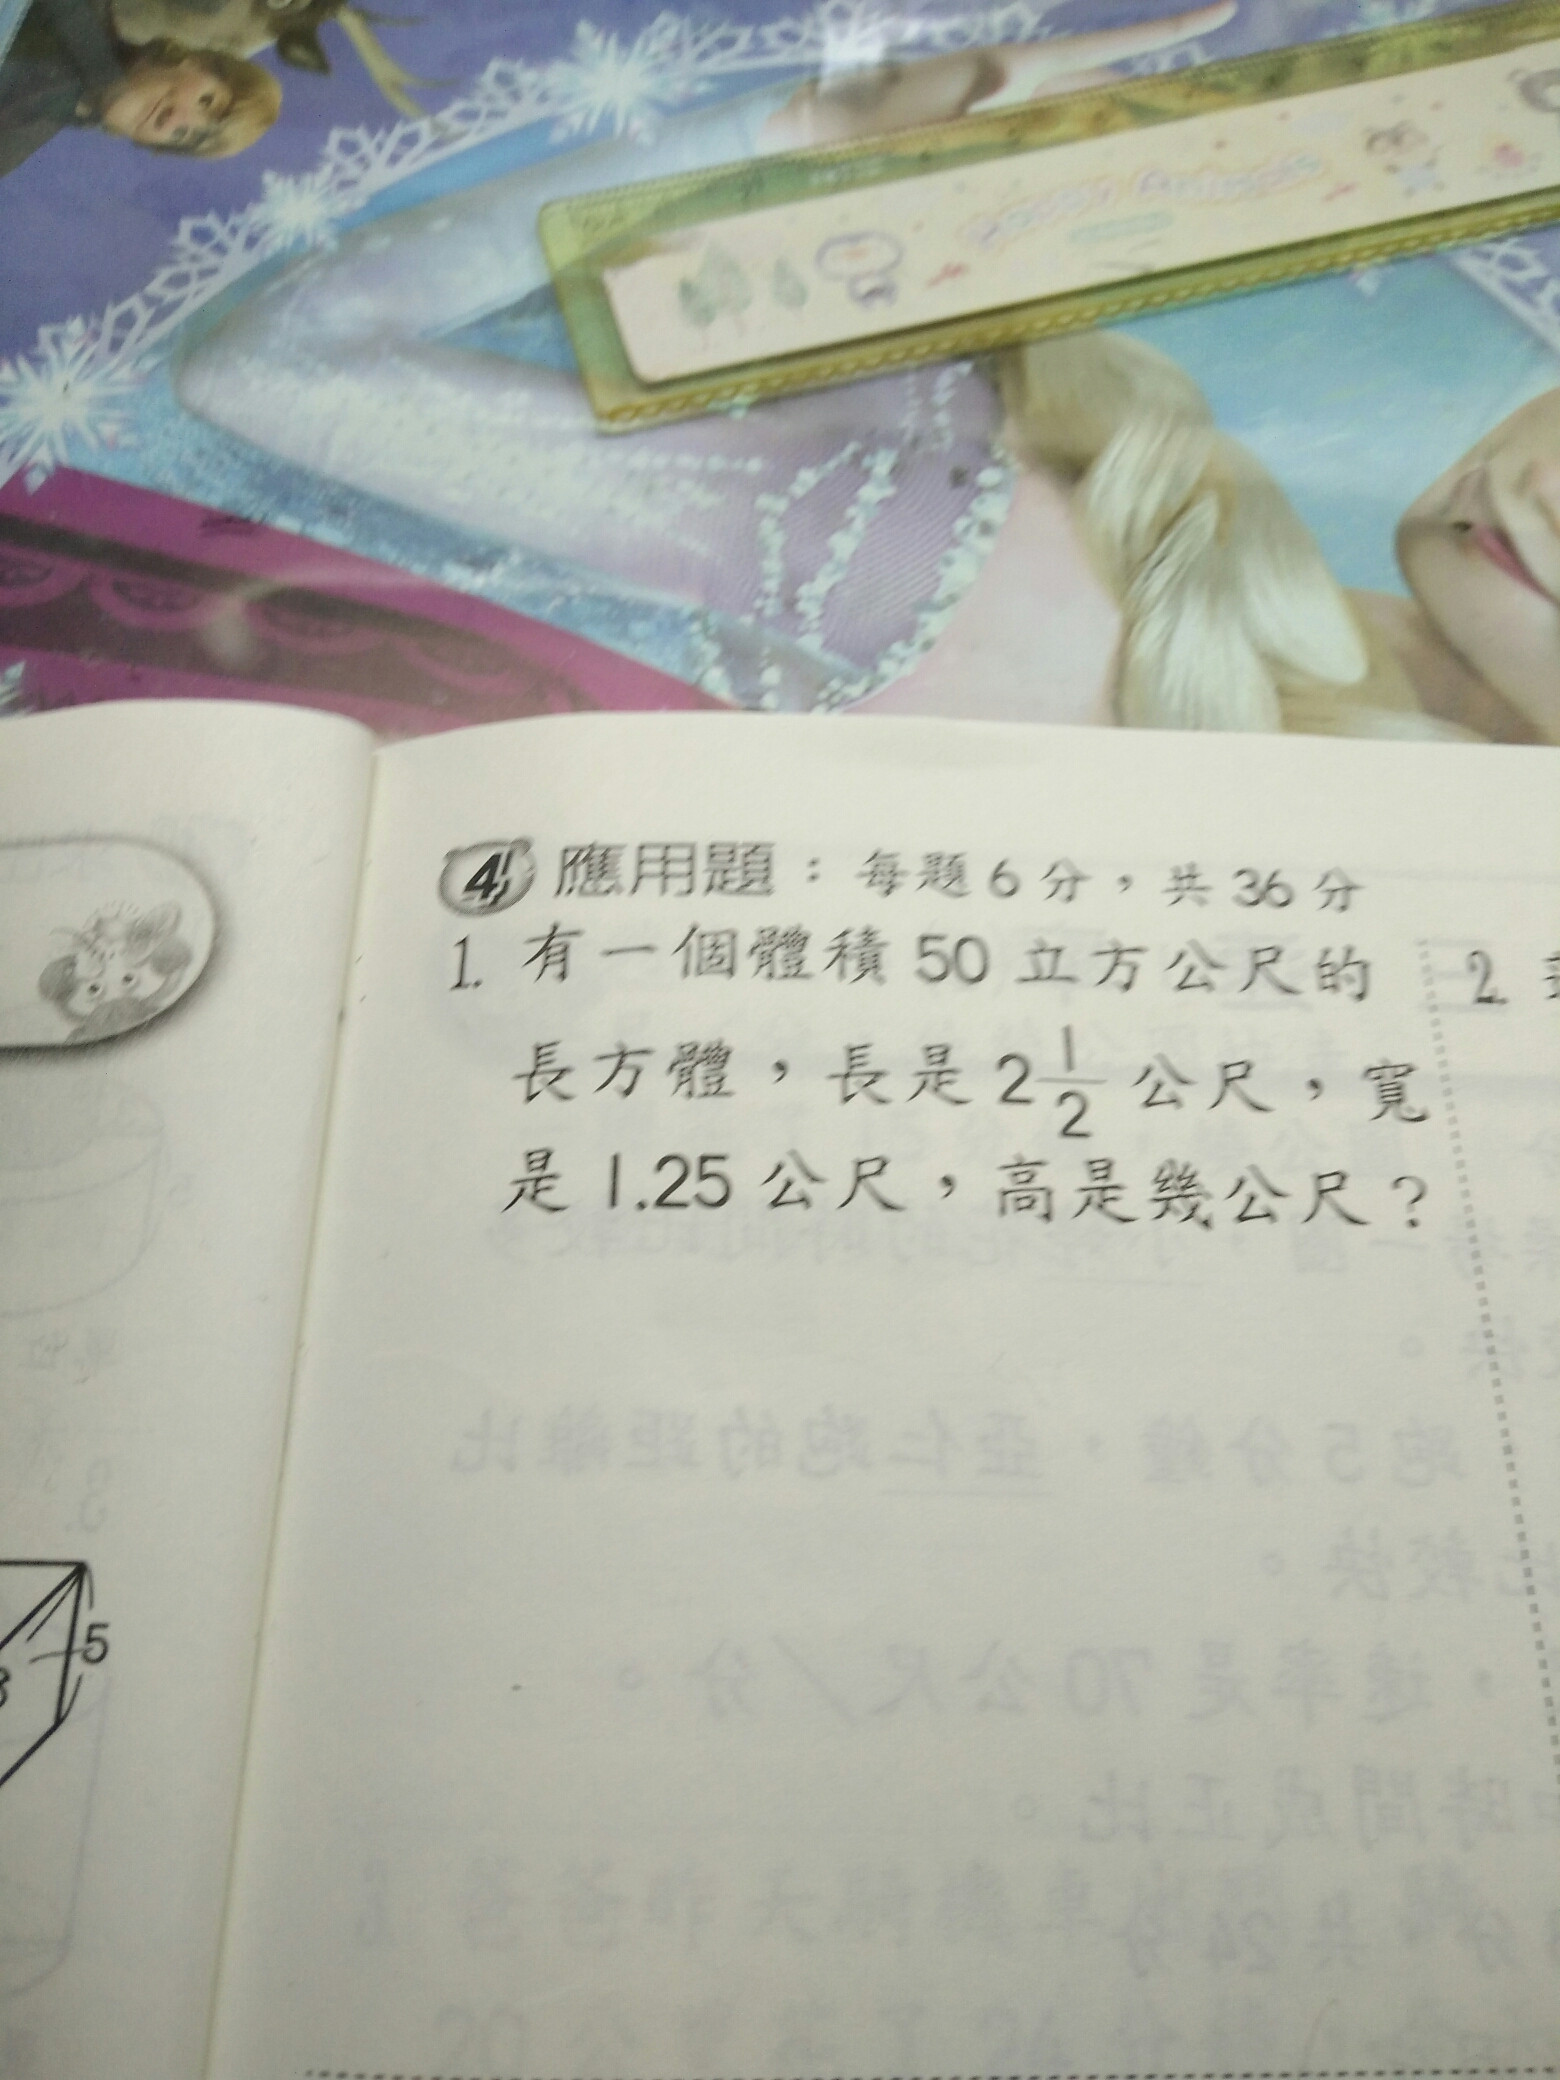 4 應用題：每題6分，共36分
1. 有一個體積50立方公尺的
長方體，長是2 1/2 公尺，寬
是1.25公尺，高是幾公尺？
2.
5